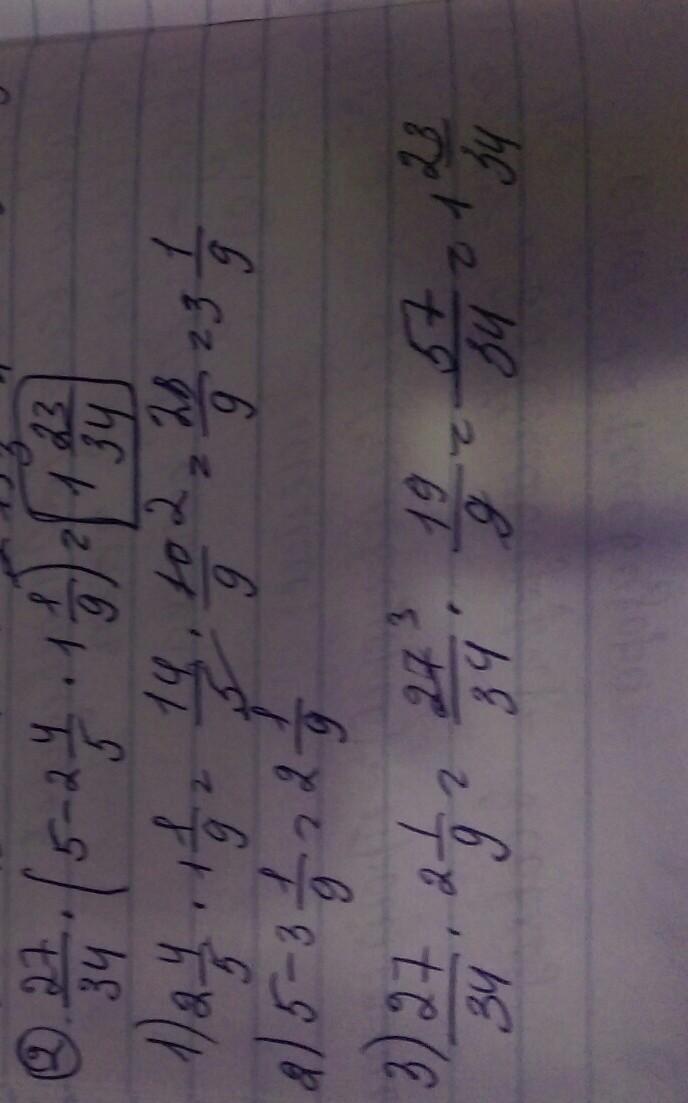 ② 27/34 · (5 - 2 4/5 · 1 1/9) = 1 23/34
1) 2 4/5 · 1 1/9 = 14/5 · 10 2/9 = 28/9 = 3 1/9
2) 5 - 3 1/9 = 2 1/9
3) 27/34 · 2 1/9 = 27 3/34 · 19/9 = 57/34 = 1 23/34